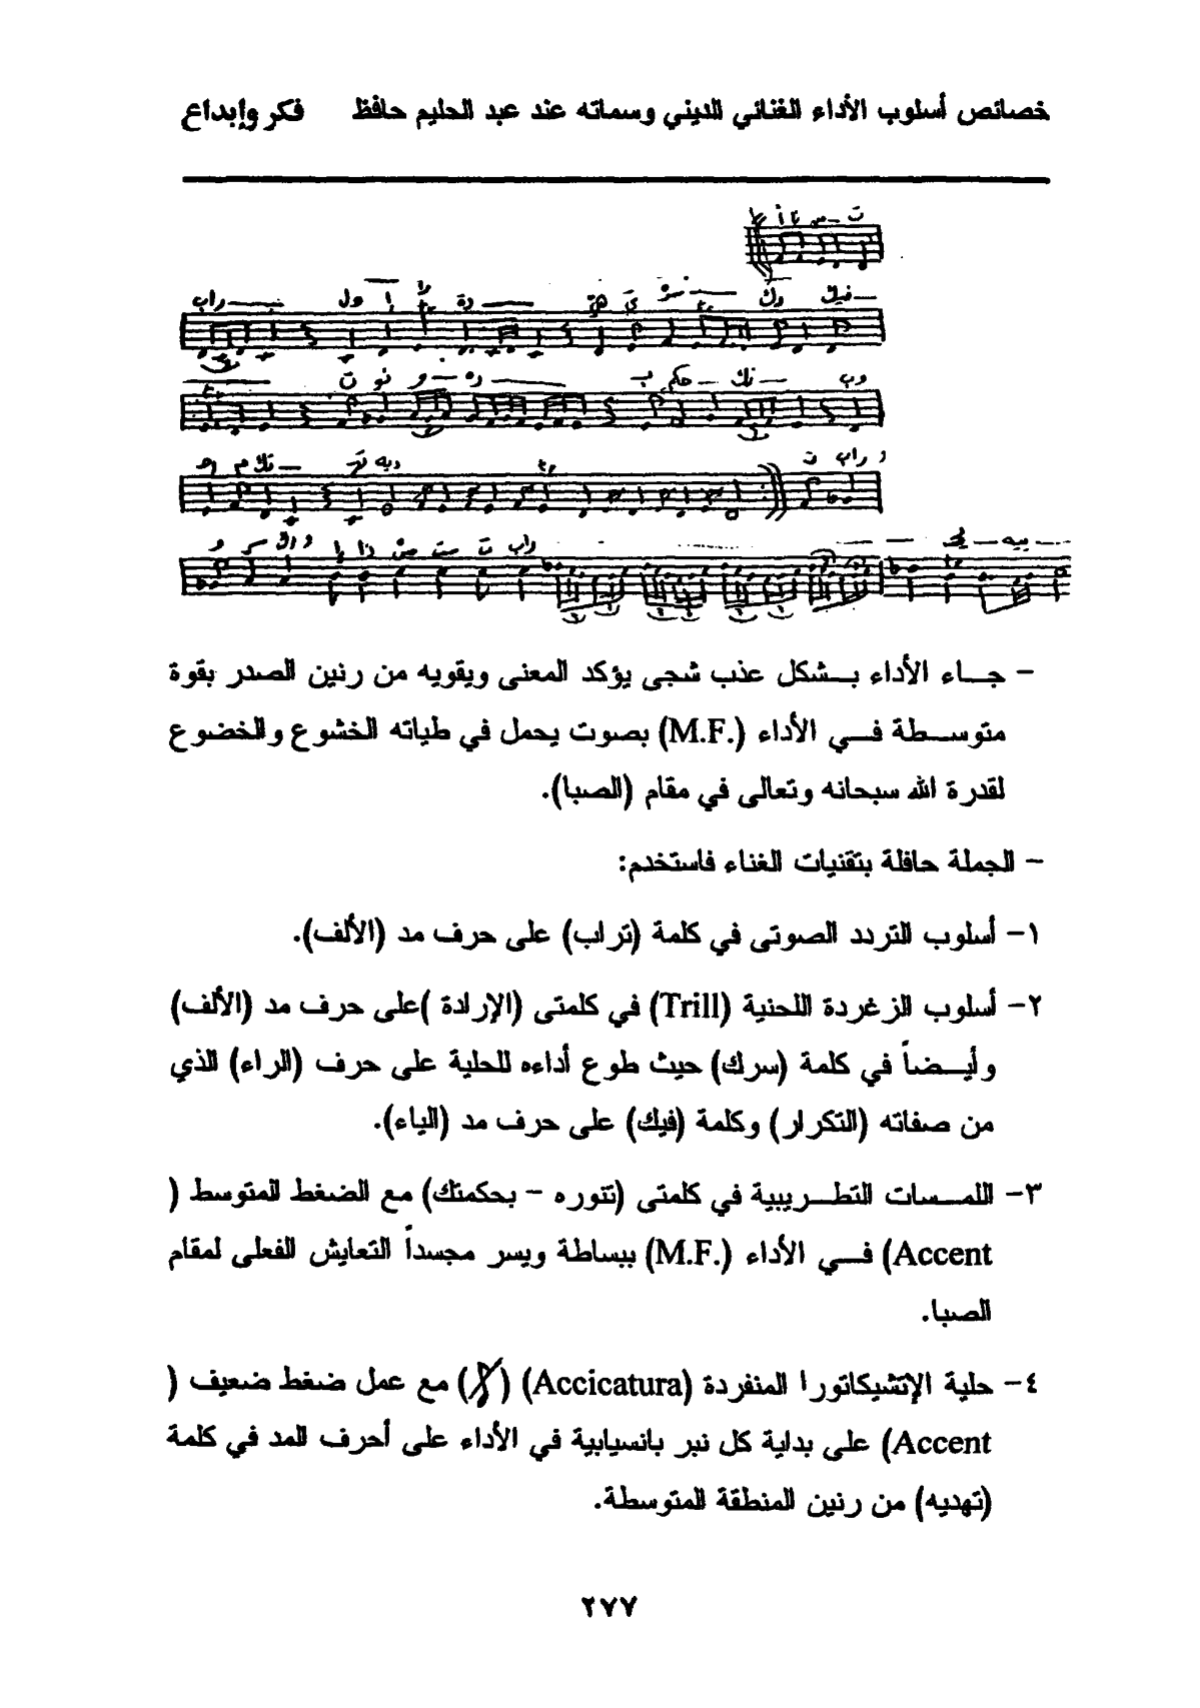 خصائص أسلوب الأداء الغنائي الديني وسماته عند عبد الحليم حافظ فكر وإبداع
– جـــاء الأداء بـــشكل عذب شجى يؤكد المعنى ويقويه من رنين الصدر بقوة
متوســـطة فـــي الأداء (M.F.) بصوت يحمل في طياته الخشوع والخضوع
لقدرة الله سبحانه وتعالى في مقام (الصبا).
– الجملة حافلة بتقنيات الغناء فاستخدم:
١– أسلوب التردد الصوتى في كلمة (تراب) على حرف مد (الألف).
٢– أسلوب الزغردة اللحنية (Trill) في كلمتى (الإرادة )على حرف مد (الألف)
وأيـــضاً في كلمة (سرك) حيث طوع أداءه للحلية على حرف (الراء) الذي
من صفاته (التكرار) وكلمة (فيك) على حرف مد (الياء).
٣– اللمـــسات التطـــريبية في كلمتى (تنوره – بحكمتك) مع الضغط المتوسط (
Accent) فـــي الأداء (M.F.) ببساطة ويسر مجسداً التعايش الفعلى لمقام
الصبا.
٤– حلية الإتشيكاتورا المنفردة (Accicatura) ( ) مع عمل ضغط ضعيف (
Accent) على بداية كل نبر بانسيابية في الأداء على أحرف المد في كلمة
(تهديه) من رنين المنطقة المتوسطة.
٢٧٧